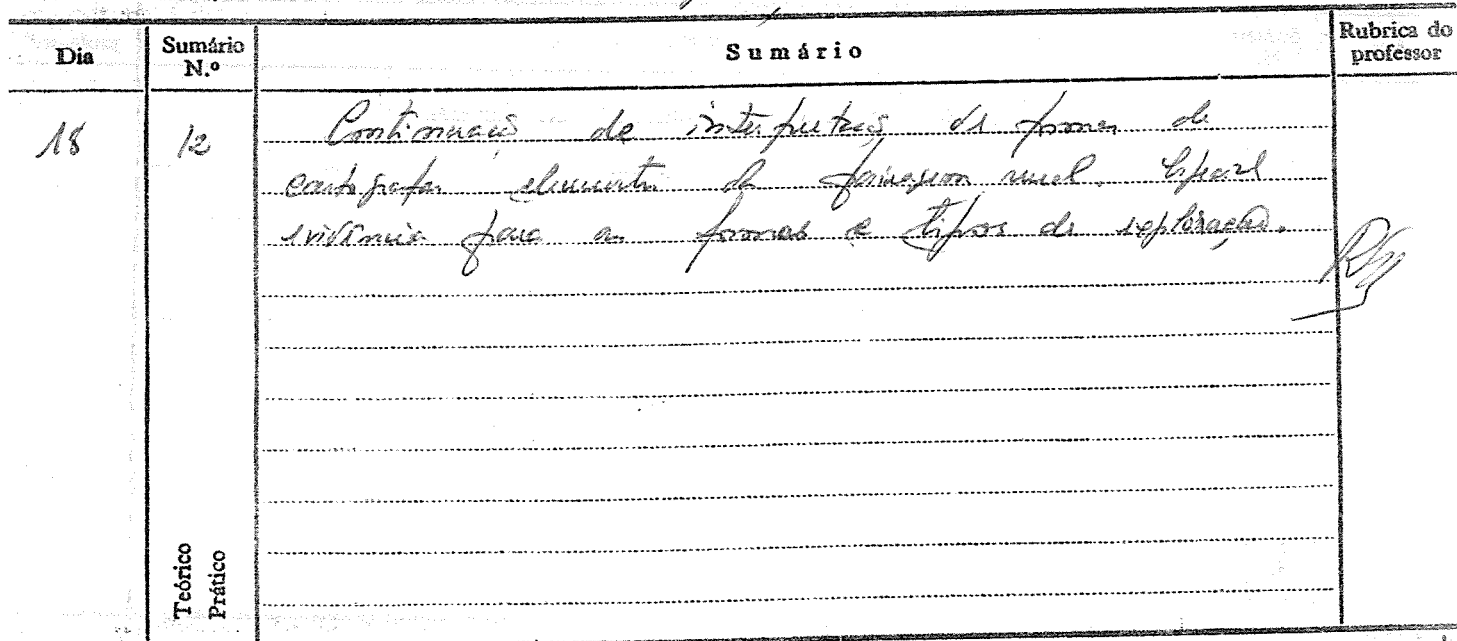 Dia
Sumário N.º
Sumário
Rubrica do professor
18
12
Continuação de interpretação de formas de
cartografar elementos da paisagem rural. Especial
evidência para as formas e tipos de exploração.
Teórico
Prático